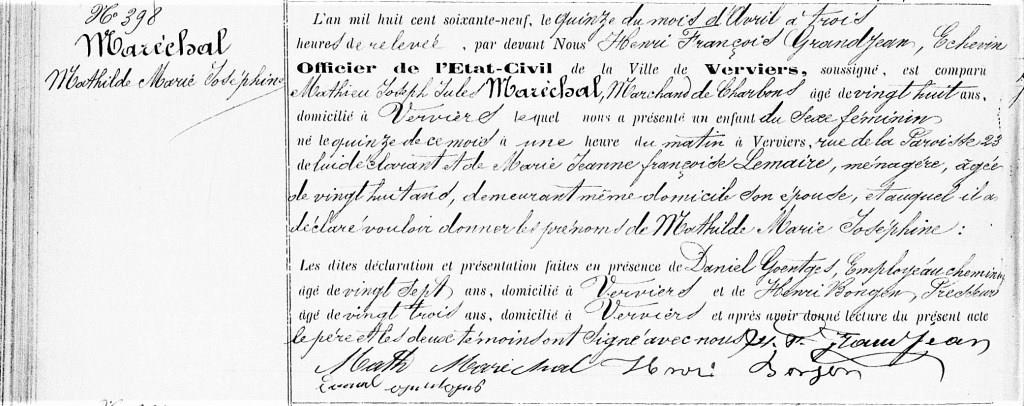 N° 398
Maréchal
Mathilde Marie Joséphine
L'an mil huit cent soixante-neuf, le quinze du mois d'Avril à trois
heures de relevée, par devant Nous Henri François Grandjean, Echevin
Officier de l'Etat-Civil de la Ville de Verviers, soussigné, est comparu
Mathieu Joseph Jules Maréchal, Marchand de Charbons âgé de vingt huit ans,
domicilié à Verviers lequel nous a présenté un enfant du Sexe féminin
né le quinze de ce mois à une heure du matin à Verviers, rue de la Paroisse 23
de lui déclarant et de Marie Jeanne françoise Lemaire, ménagère, âgée
de vingt huit ans, demeurant même domicile son épouse, et auquel il a
déclaré vouloir donner les prénoms de Mathilde Marie Joséphine :
Les dites déclaration et présentation faites en présence de Daniel Goentges, Employé au chemin
âgé de vingt sept ans, domicilié à Verviers et de Henri Bongen,
âgé de vingt trois ans, domicilié à Verviers et après avoir donné lecture du présent acte
le père et les deux témoins ont signé avec nous H. F. Grandjean
Math Maréchal Henri Bongen